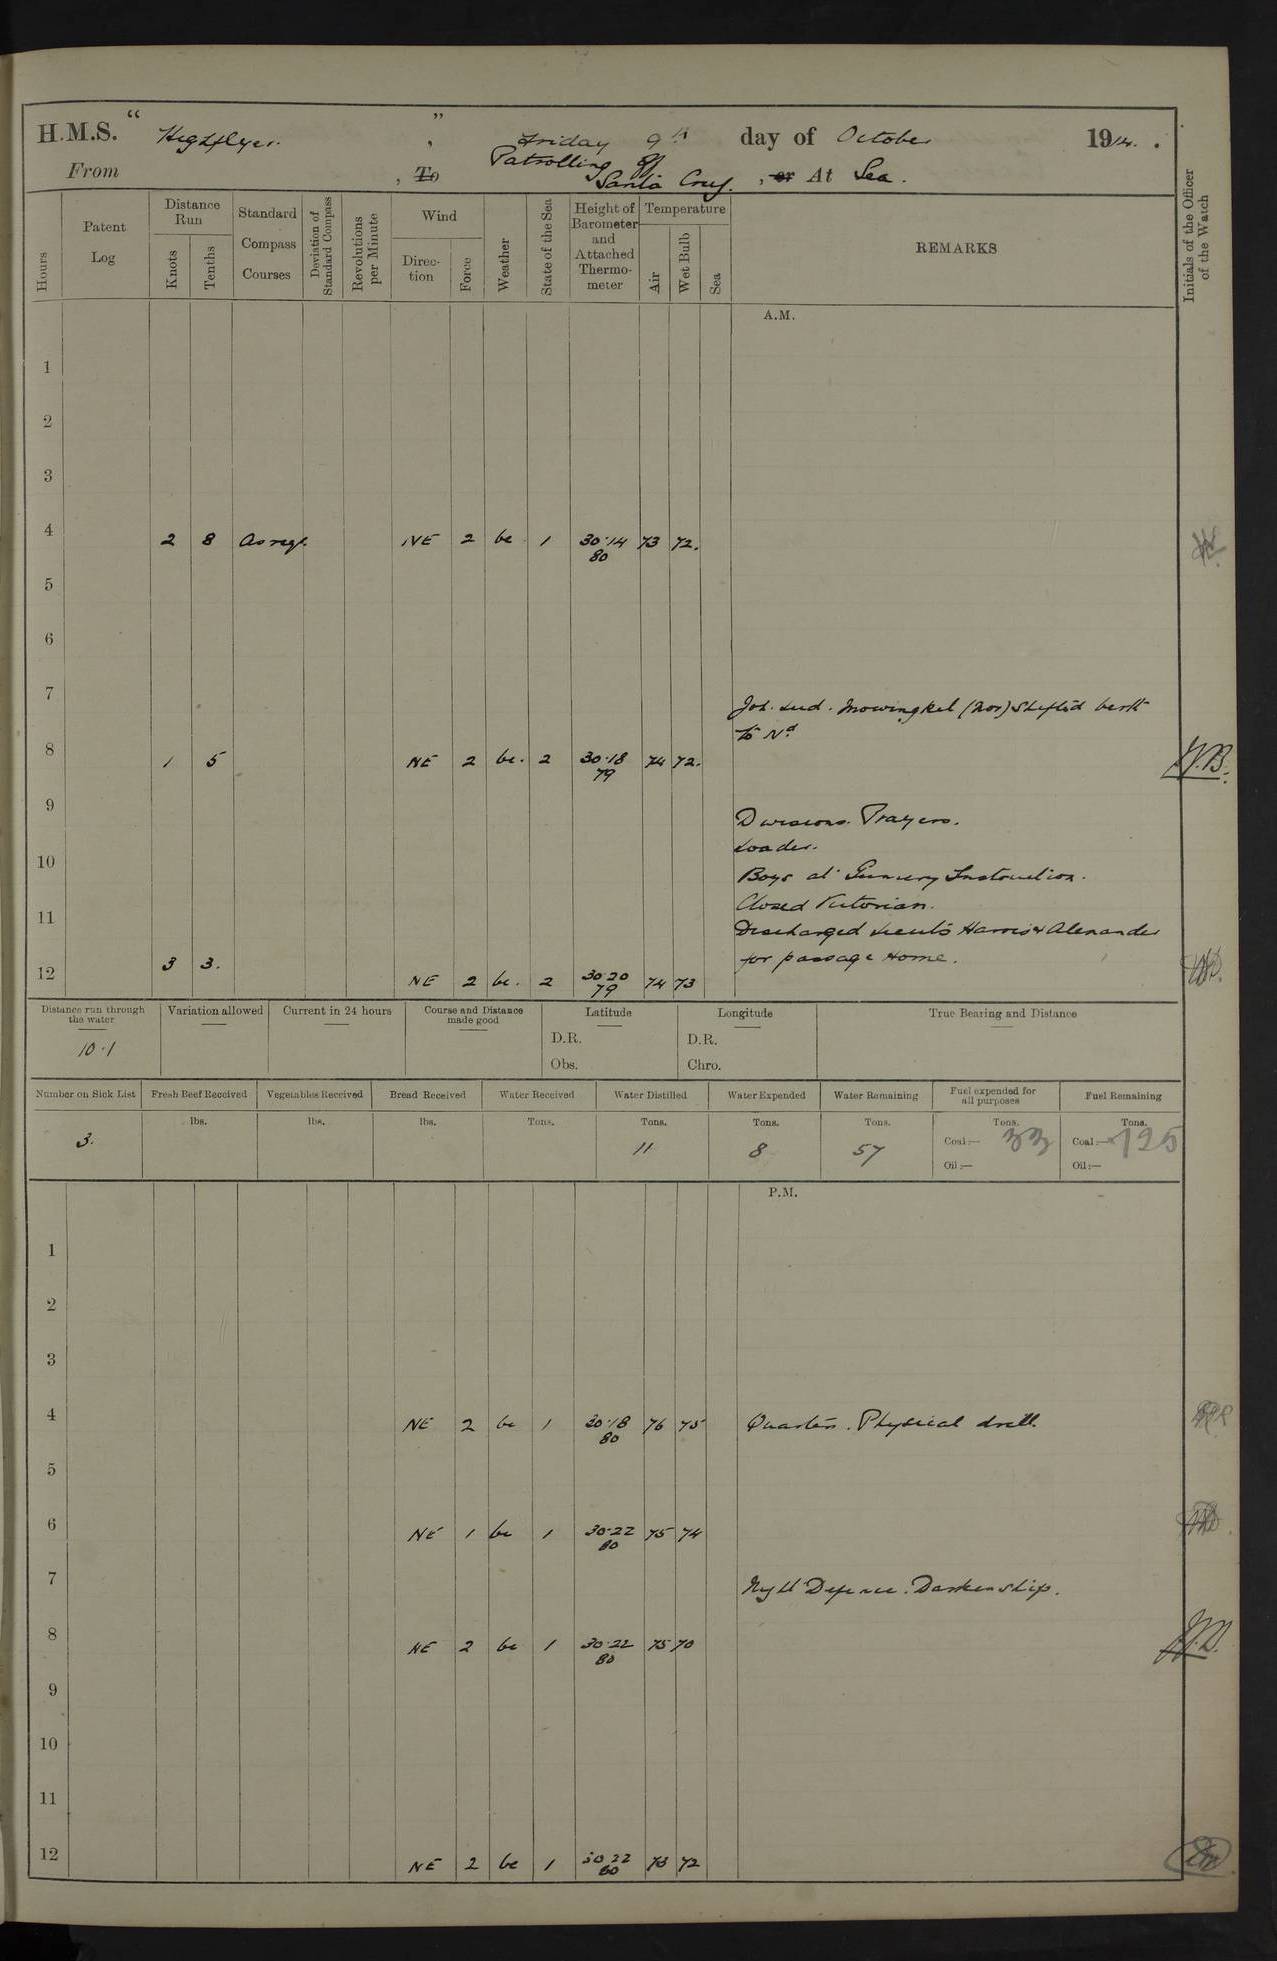 H.M.S. " Highflyer. " , Friday 9th day of October 1914.
From , To Patrolling off Santa Cruz. , or At Sea.
Hours
Patent Log
Distance Run
Knots
Tenths
Standard Compass Courses
Deviation of Standard Compass
Revolutions per Minute
Wind
Direction
Force
Weather
State of the Sea
Height of Barometer and Attached Thermometer
Temperature
Air
Wet Bulb
Sea
REMARKS
Initials of the Officer of the Watch
A.M.
1
2
3
4 2 8 As req. NE 2 bc 1 30.14 80 73 72.
5
6
7
Joh. Lud. Mowinckel (Nor) Shifted berth
to Nd
8 1 5 NE 2 bc. 2 30.18 79 74 72. W.B.
9
Divisions. Prayers.
Loader.
10
Boys at Gunnery Instruction.
Closed Victorian.
11
Discharged Lieuts Harris & Alexander
for passage Home.
12 3 3. NE 2 bc. 2 30.20 79 74 73
Distance run through the water
Variation allowed
Current in 24 hours
Course and Distance made good
Latitude
Longitude
True Bearing and Distance
10.1
D.R.
Obs.
D.R.
Chro.
Number on Sick List
Fresh Beef Received
Vegetables Received
Bread Received
Water Received
Water Distilled
Water Expended
Water Remaining
Fuel expended for all purposes
Fuel Remaining
3.
lbs.
lbs.
lbs.
Tons.
Tons. 11
Tons. 8
Tons. 57
Tons. Coal:— 33 Oil:—
Tons. Coal:— 725 Oil:—
P.M.
1
2
3
4 NE 2 bc 1 30.18 80 76 75 Quarters. Physical drill.
5
6 NE 1 bc 1 30.22 80 75 74
7 Night Defence. Darken Ship.
8 NE 2 bc 1 30.22 80 75 70
9
10
11
12 NE 2 bc 1 30.22 80 73 72